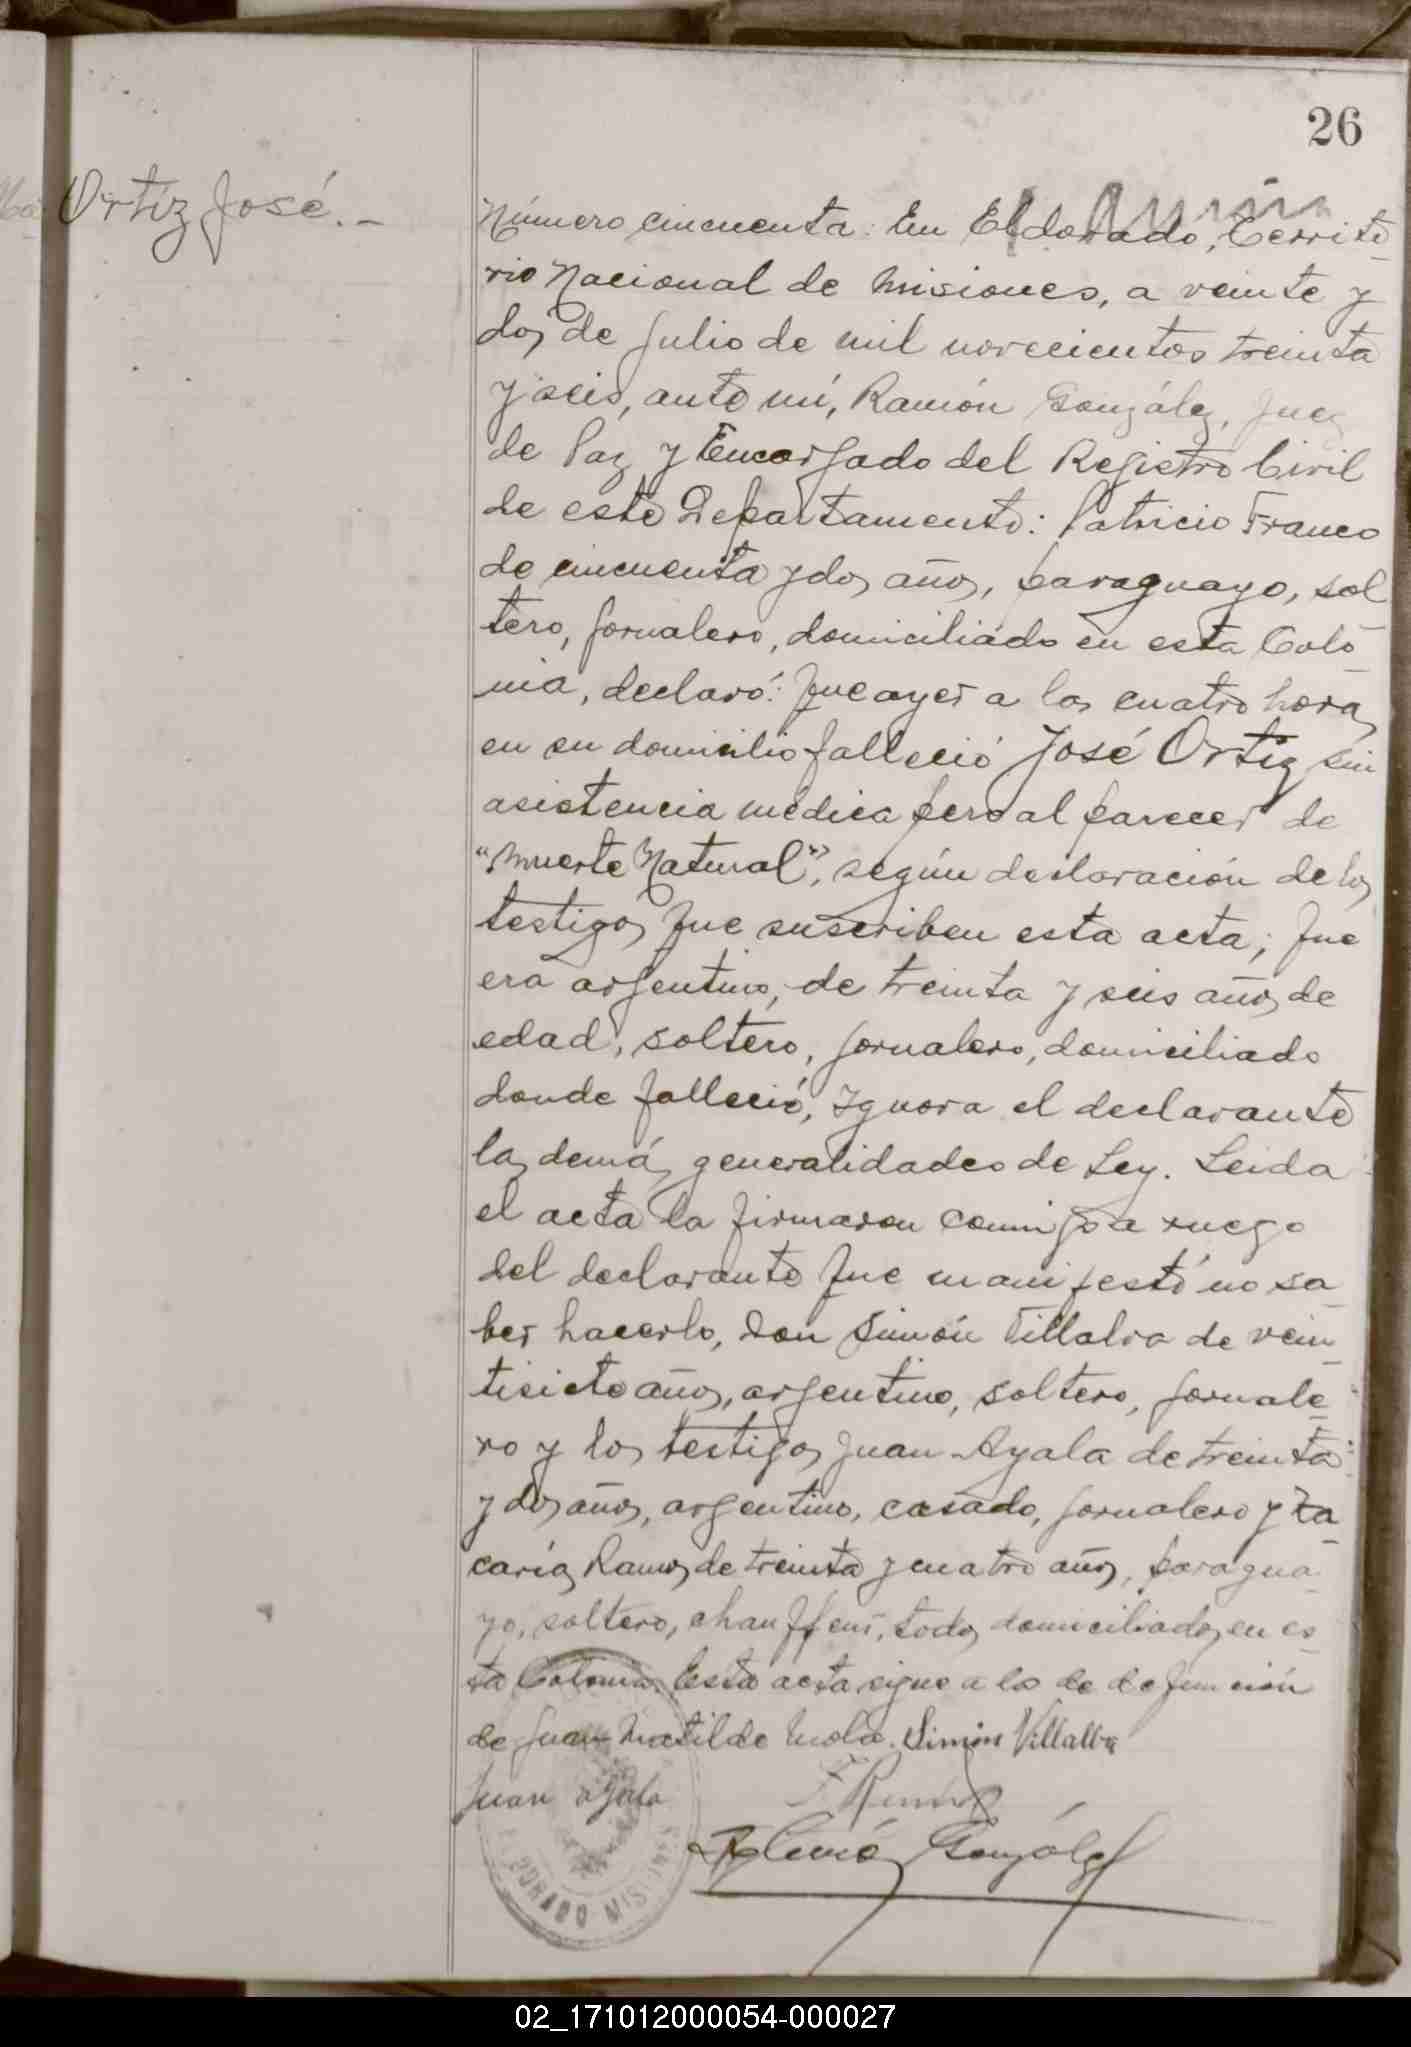 26
Ortíz José.-
Número cincuenta: En Eldorado, Territo-
rio Nacional de Misiones, a veinte y
dos de Julio de mil novecientos treinta
y seis, ante mí, Ramón González, Juez
de Paz y Encargado del Registro Civil
de este Departamento: Patricio Franco
de cincuenta y dos años, paraguayo, sol
tero, jornalero, domiciliado en esta Colo-
nia, declaró: Que ayer a las cuatro horas
en su domicilio falleció José Ortiz sin
asistencia médica pero al parecer de
"Muerte Natural", según declaración de los
testigos que suscriben esta acta; que
era argentino, de treinta y seis años de
edad, soltero, jornalero, domiciliado
donde falleció, Ignora el declarante
las demás generalidades de Ley. Leida
el acta la firmaron conmigo a ruego
del declarante que manifestó no sa-
ber hacerlo, don Simón Villalva de vein-
tisiete años, argentino, soltero, jornale-
ro y los testigos Juan Ayala de treinta
y dos años, argentino, casado, jornalero y Za-
carías Ramos de treinta y cuatro años, paragua-
yo, soltero, chauffeur, todos domiciliados en es-
ta Colonia. Esta acta sigue a la de defunción
de Juan Matilde Mola. Simón Villalba
Juan Ayala
Ramón González
ELDORADO MISIONES
02_171012000054-000027